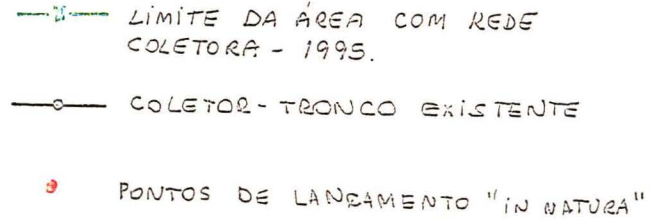 LIMITE DA ÁREA COM REDE
COLETORA - 1995.
COLETOR-TRONCO EXISTENTE
PONTOS DE LANÇAMENTO "IN NATURA"